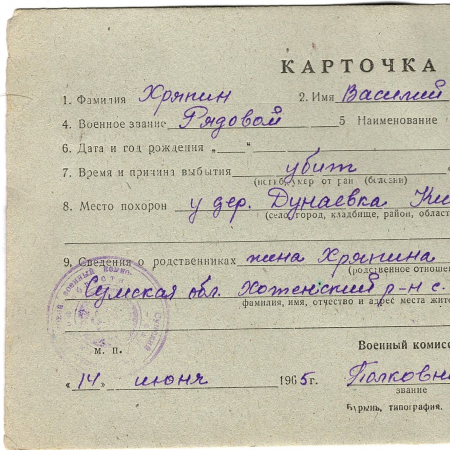 КАРТОЧКА
1. Фамилия Хряпин 2. Имя Василий
4. Военное звание Рядовой 5 Наименование
6. Дата и год рождения „ “
7. Время и причина выбытия убит „
(погиб, умер от ран (болезни)
8. Место похорон у дер. Дунаевка Ки
(село, город, кладбище, район, област
9. Сведения о родственниках жена Хряпина
(родственное отноше
Сумская обл. Хотенский р-н с.
фамилия, имя, отчество и адрес места жите
Военный комисс
м. п.
„14“ июня 1965г. Полковн
звание
Бурынь, типография.